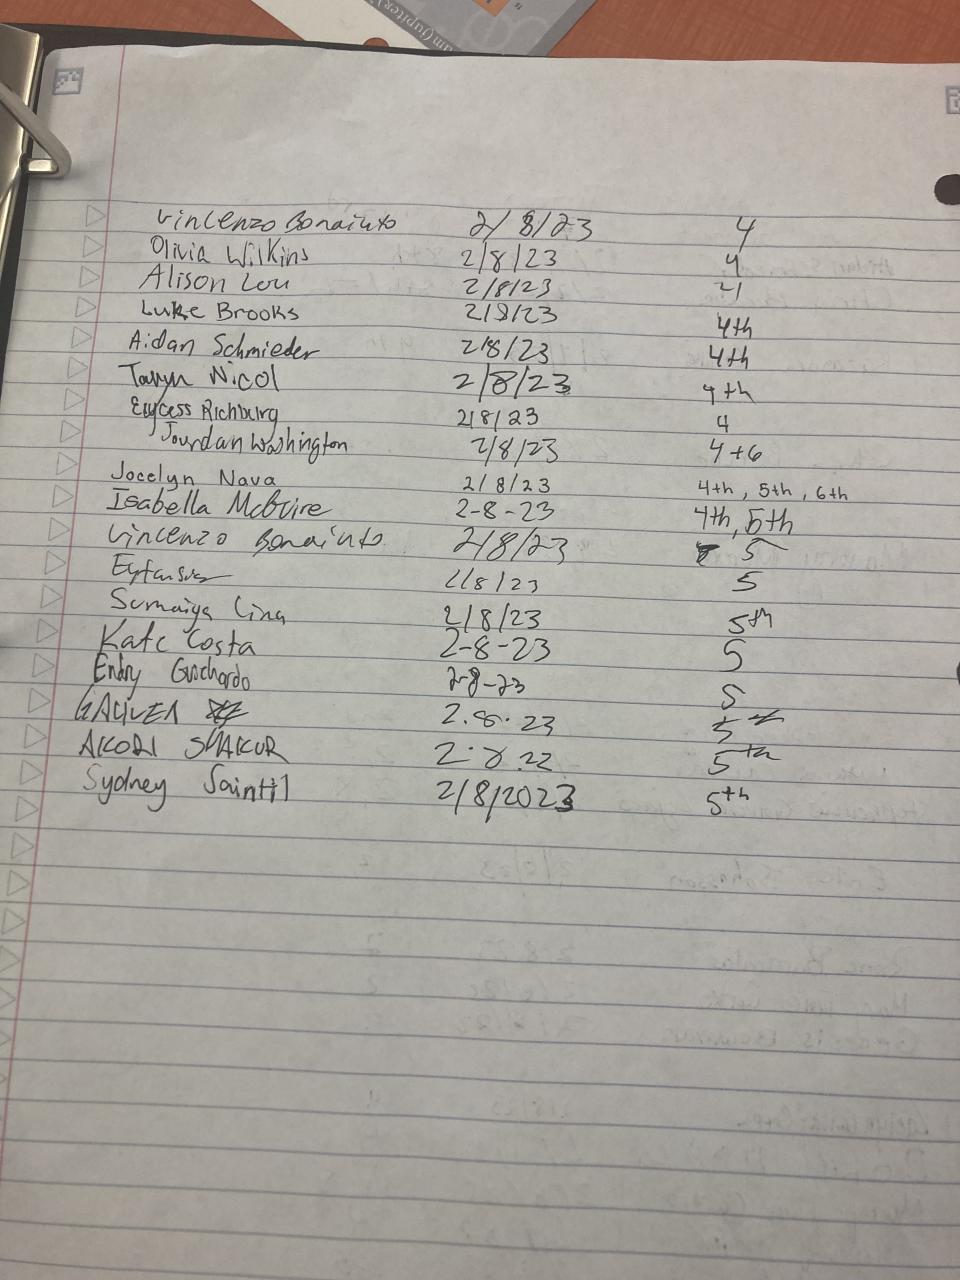 um (Jupiter)
Vincenzo Bonaiuto 2/8/23 4
Olivia Wilkins 2/8/23 4
Alison Lou 2/8/23 4
Luke Brooks 2/8/23 4th
Aidan Schmieder 2/8/23 4th
Taryn Nicol 2/8/23 4th
Richburg 2/8/23 4
Jourdan Washington 2/8/23 4+6
Jocelyn Nava 2/8/23 4th, 5th, 6th
Isabella McGuire 2-8-23 4th, 5th
Vincenzo Bonaiuto 2/8/23 5
2/8/23 5
Sumaiya 2/8/23 5th
Kate Costa 2-8-23 5
Endry Guichardo 2-8-23 5
2.8.23 5th
AKORI SHAKUR 2.8.22 5th
Sydney Saintil 2/8/2023 5th